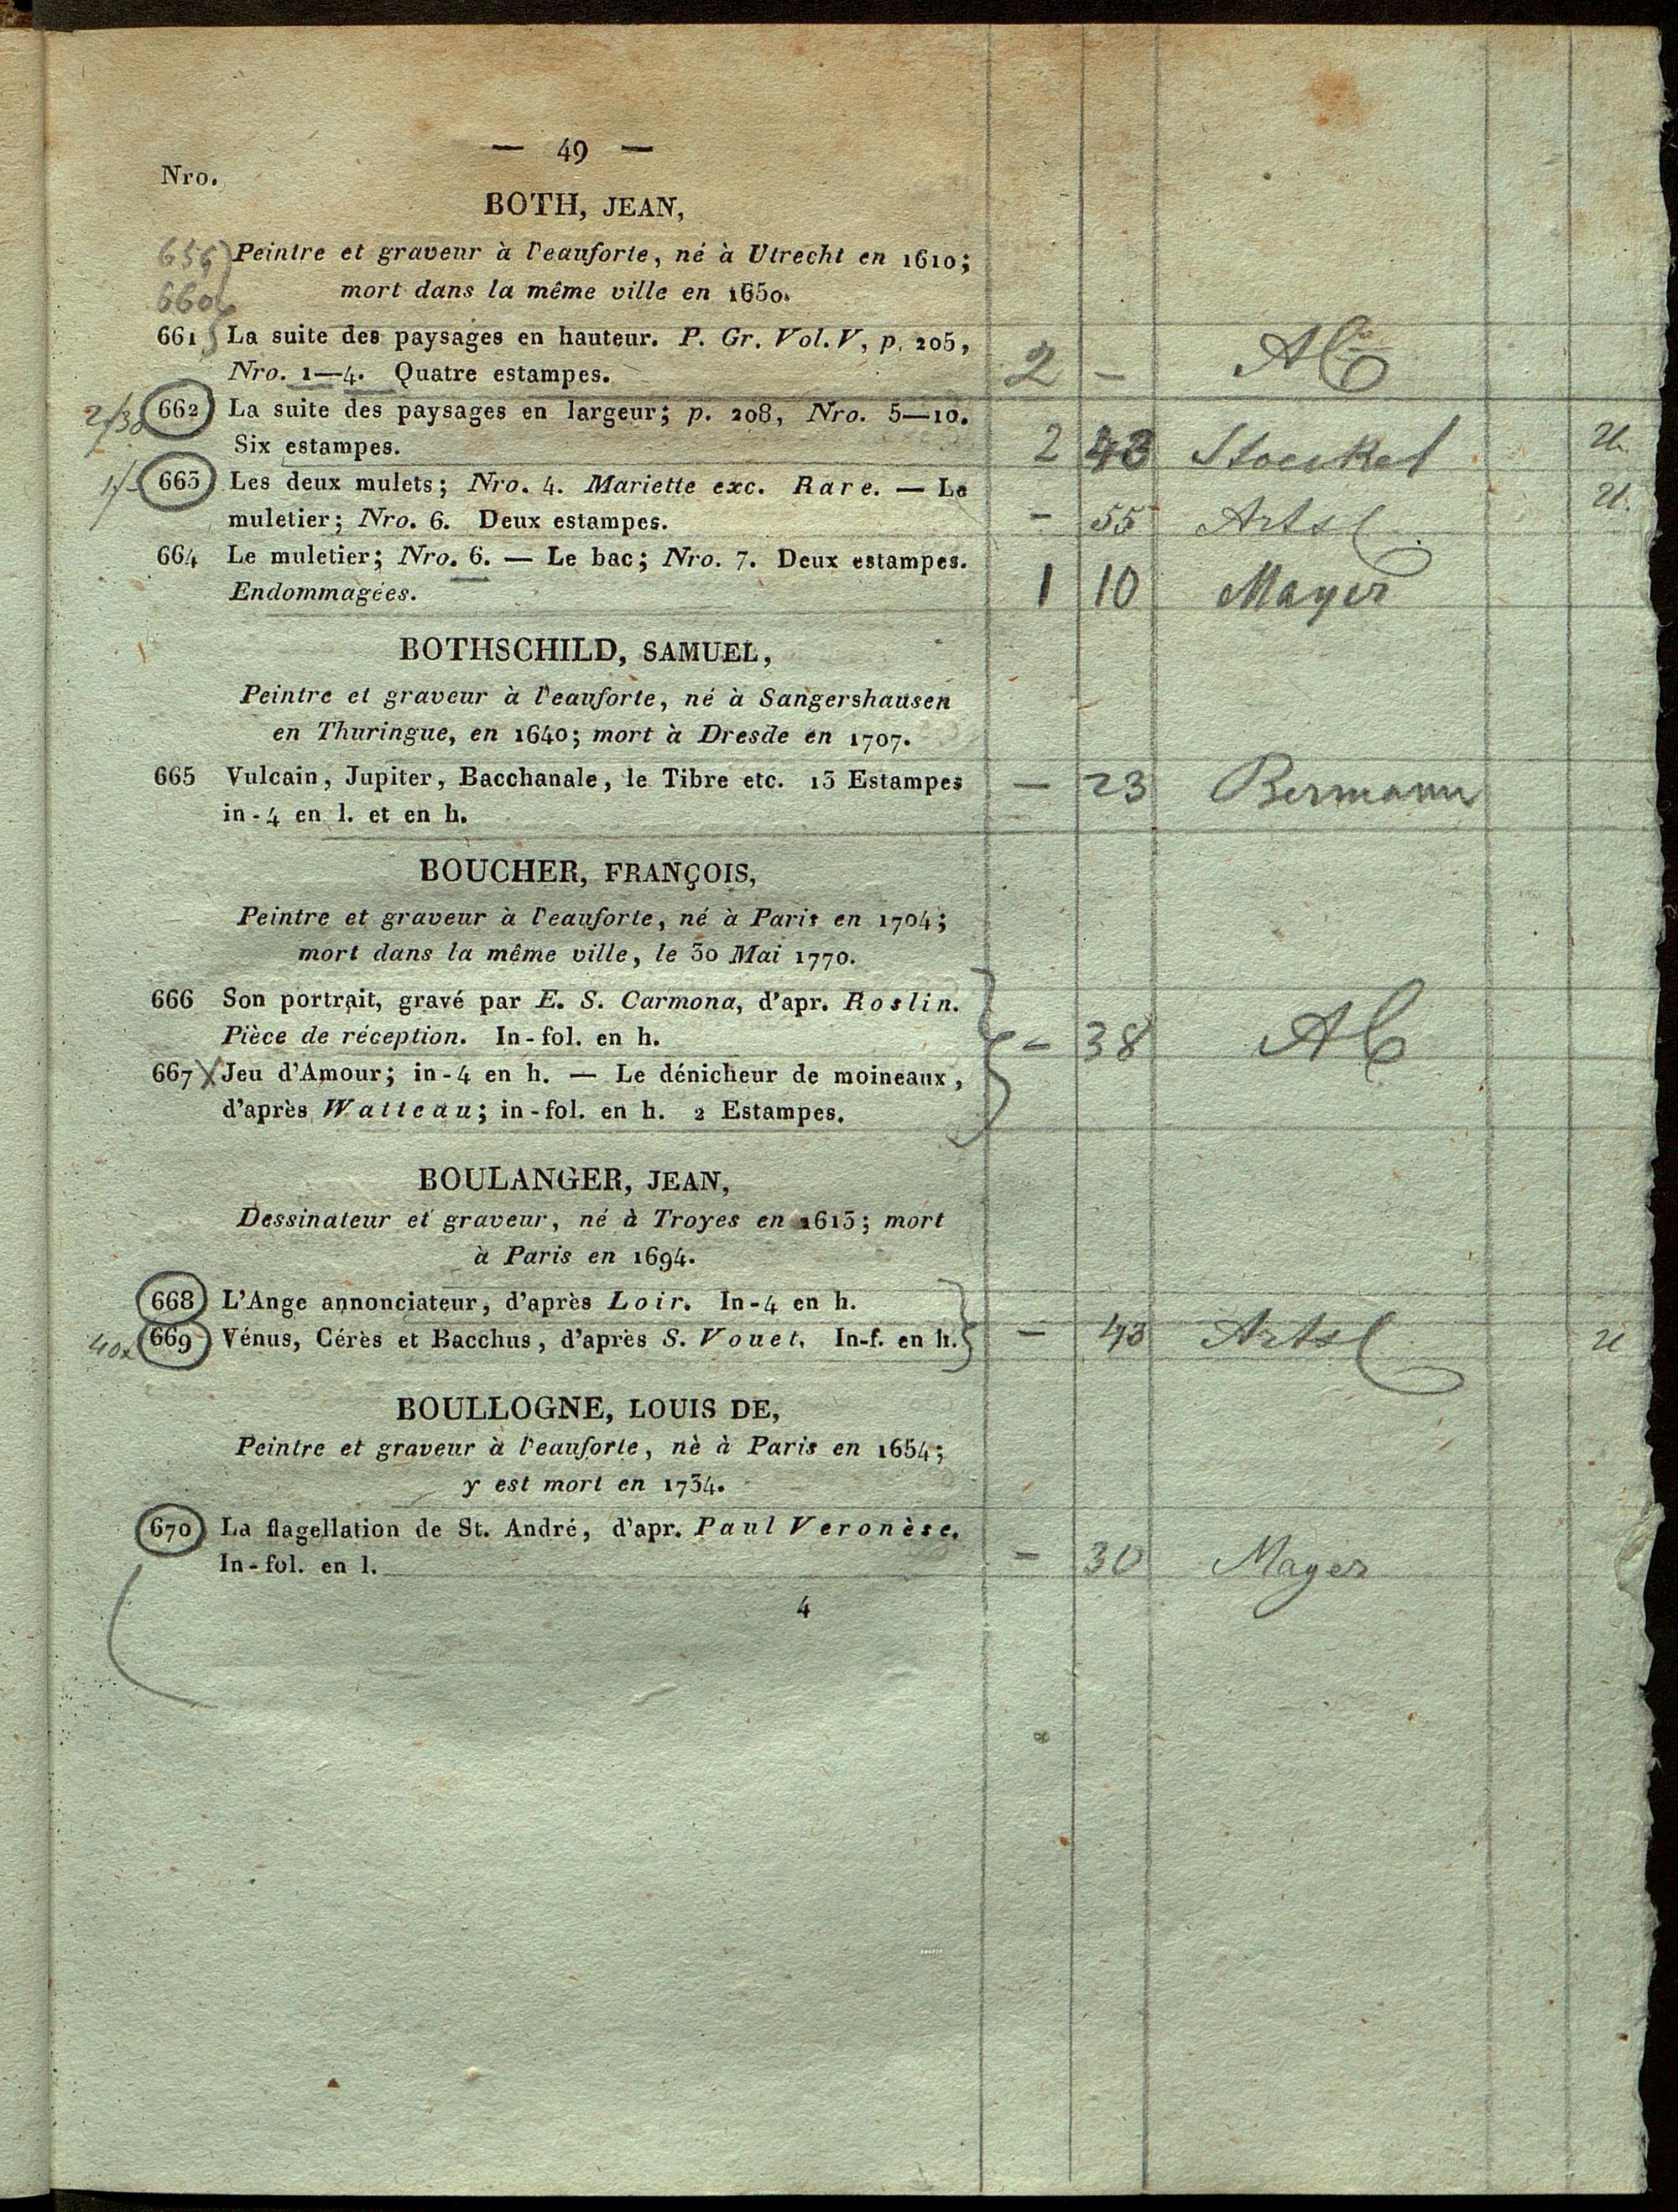 — 49 —
Nro.
BOTH, JEAN,
656 Peintre et graveur à l'eauforte, né à Utrecht en 1610;
660 mort dans la même ville en 1650.
661 La suite des paysages en hauteur. P. Gr. Vol. V, p. 205,
Nro. 1—4. Quatre estampes. 2 —
2/30 662 La suite des paysages en largeur; p. 208, Nro. 5—10.
Six estampes. 2 48 Stoeckel
1/- 663 Les deux mulets; Nro. 4. Mariette exc. Rare. — Le
muletier; Nro. 6. Deux estampes. — 55 Arta
664 Le muletier; Nro. 6. — Le bac; Nro. 7. Deux estampes.
Endommagées. 1 10 Mayer
BOTHSCHILD, SAMUEL,
Peintre et graveur à l'eauforte, né à Sangershausen
en Thuringue, en 1640; mort à Dresde en 1707.
665 Vulcain, Jupiter, Bacchanale, le Tibre etc. 13 Estampes — 23 Bermann
in-4 en l. et en h.
BOUCHER, FRANÇOIS,
Peintre et graveur à l'eauforte, né à Paris en 1704;
mort dans la même ville, le 30 Mai 1770.
666 Son portrait, gravé par E. S. Carmona, d'apr. Roslin.
Pièce de réception. In-fol. en h. — 38
667 X Jeu d'Amour; in-4 en h. — Le dénicheur de moineaux,
d'après Watteau; in-fol. en h. 2 Estampes.
BOULANGER, JEAN,
Dessinateur et graveur, né à Troyes en 1613; mort
à Paris en 1694.
668 L'Ange annonciateur, d'après Loir. In-4 en h.
40x 669 Vénus, Cérès et Bacchus, d'après S. Vouet. In-f. en h. —
BOULLOGNE, LOUIS DE,
Peintre et graveur à l'eauforte, nè à Paris en 1654;
y est mort en 1734.
670 La flagellation de St. André, d'apr. Paul Veronèse.
In-fol. en l. — 30 Mayer
4